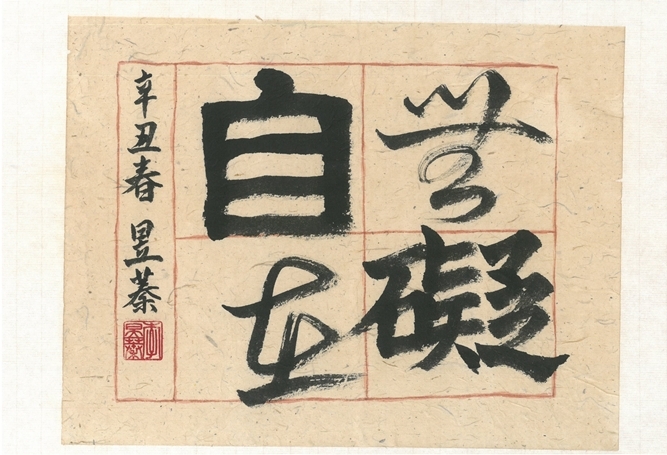 無礙
自在
辛丑春 昱蓁